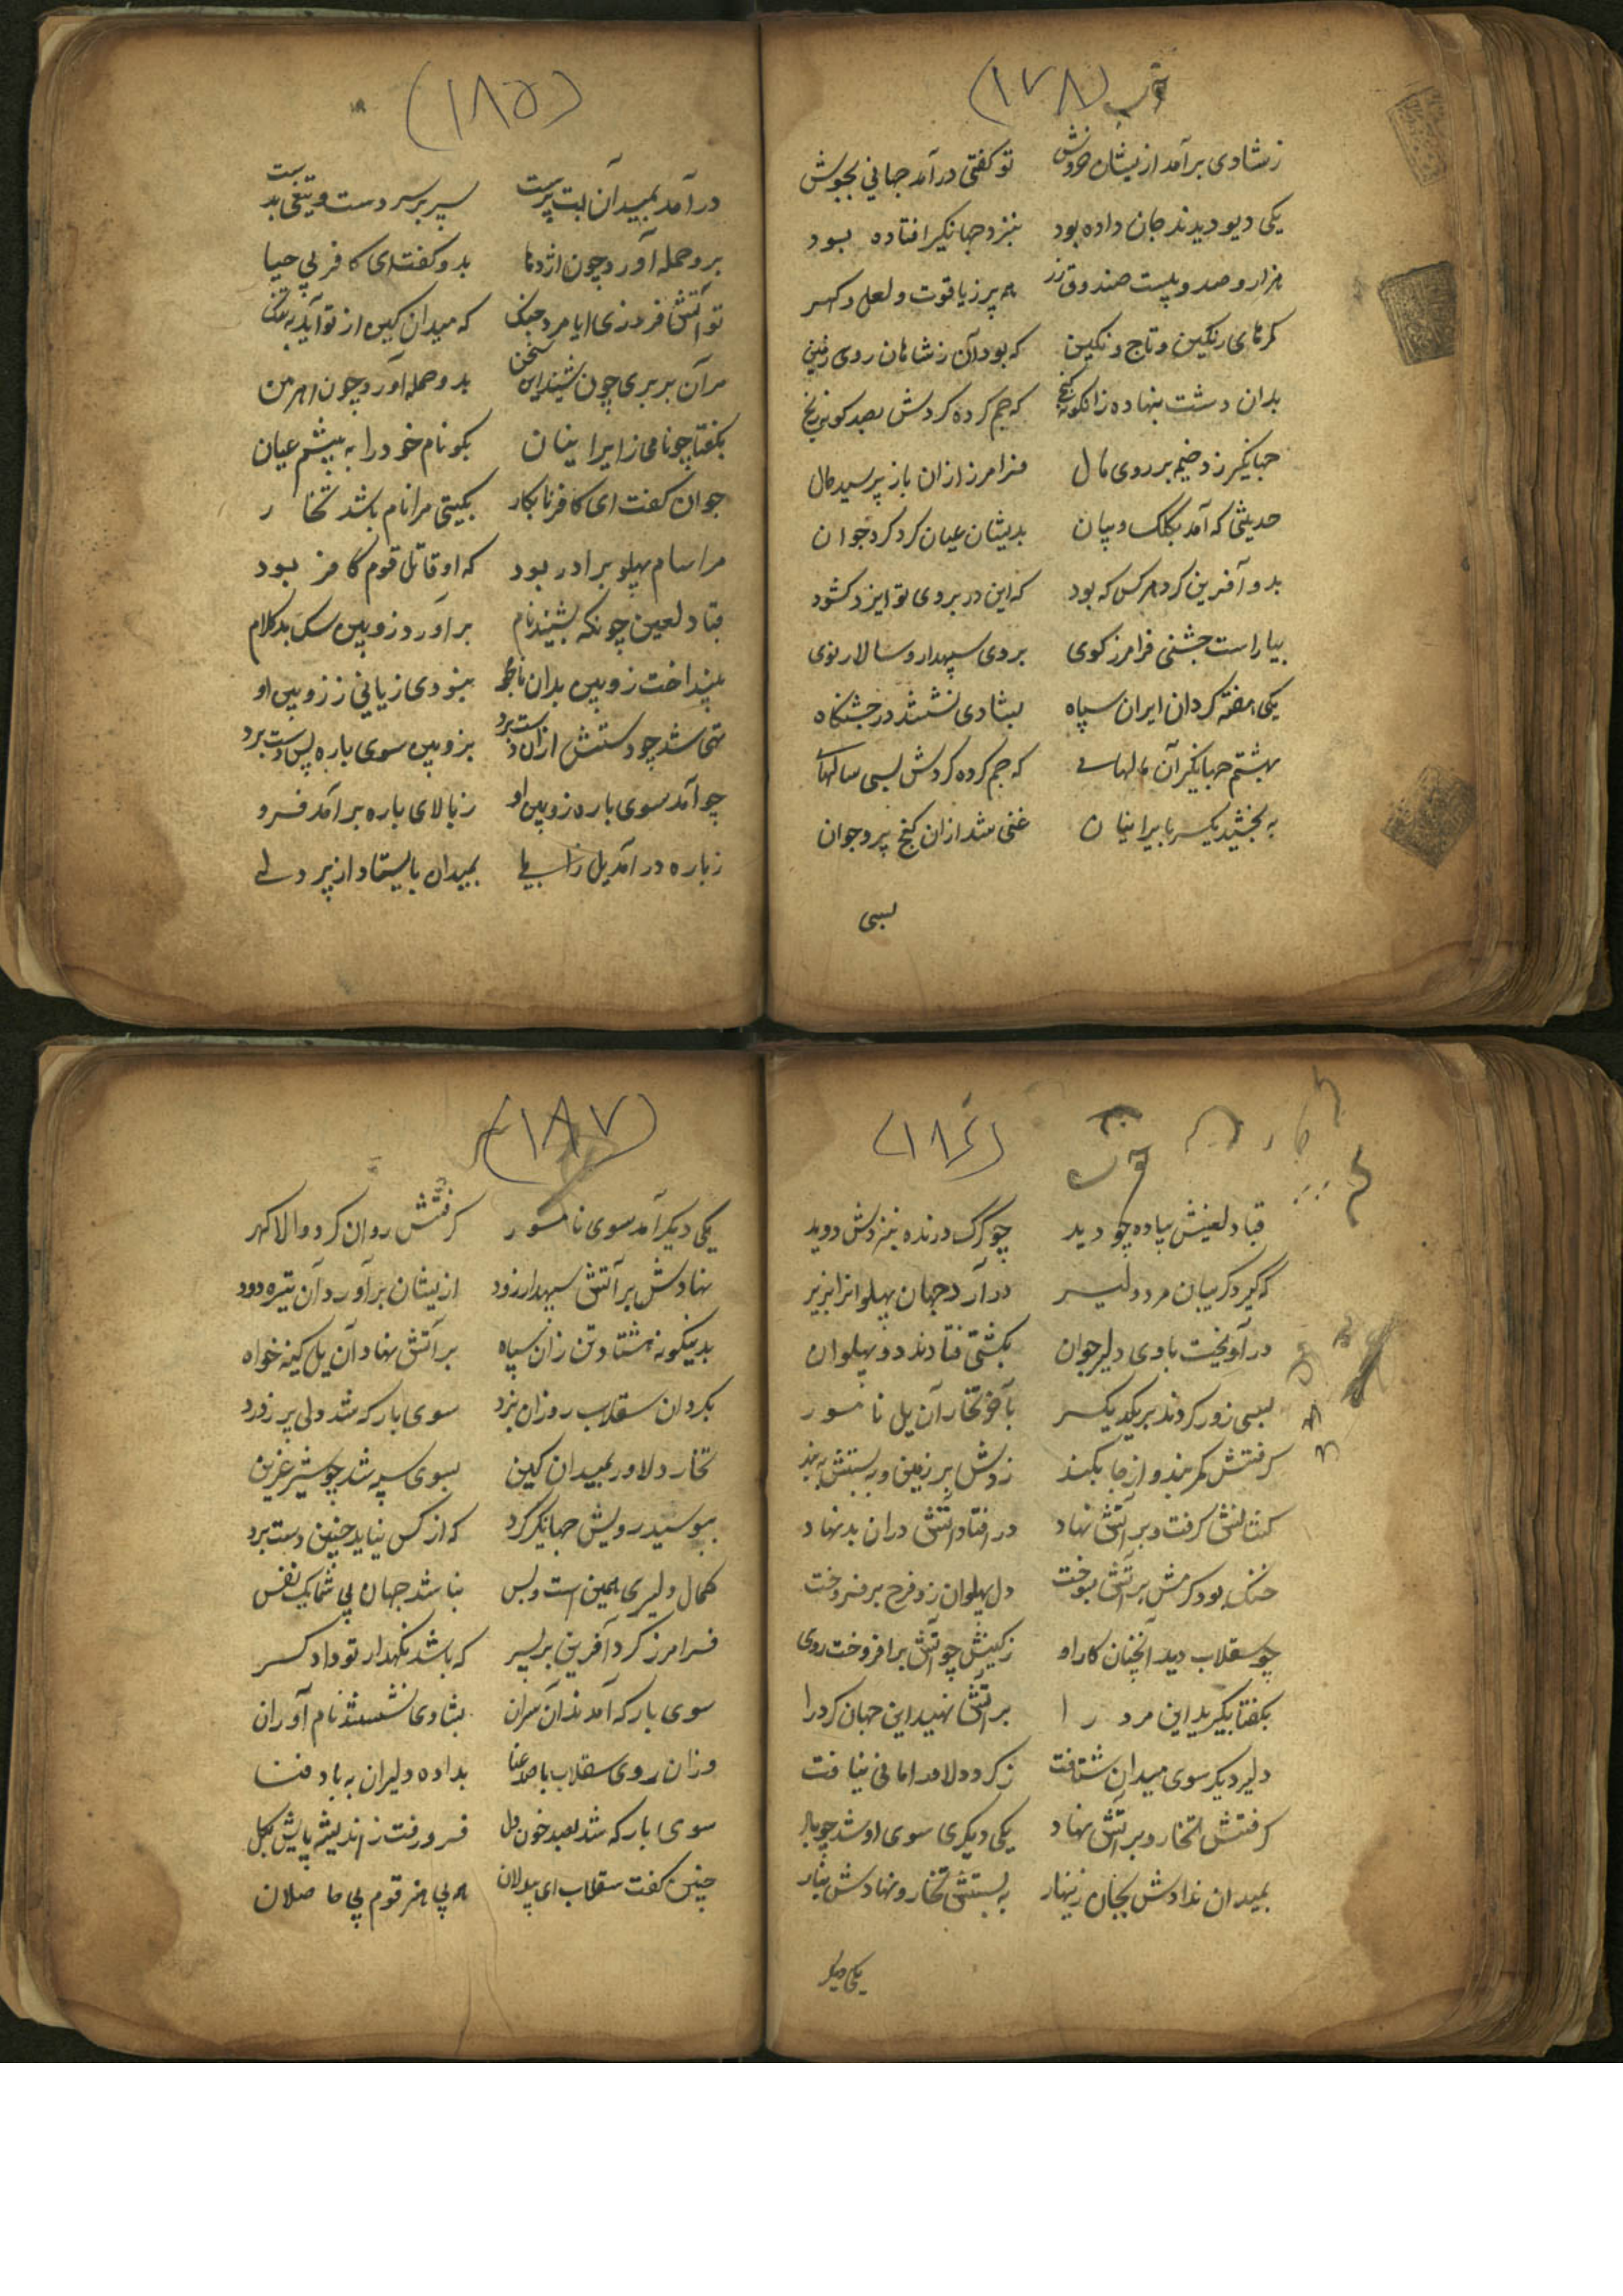 (۱۷۸)
ز شادی برآمد ازیشان خروش تو گفتی درآمد جهانی بجوش
یکی دیو دیدند جان داده بود بنزد جهانگیر افتاده بود
هزار و صد و بیست صندوق زر همه پر ز یاقوت و لعل و گهر
کمرهای رنگین و تاج و نگین که بود آن ز شاهان روی زمین
بدان دشت بنهاده زانگونه گنج که جم کرده گردش بصد گونه رنج
جهانگیر زد خیمه بر روی مال فرامرز ازان باز پرسید حال
حدیثی که آمد بکلک و بیان بدیشان عیان کرد گرد جوان
بدو آفرین کرد هر کس که بود که این در بروی تو ایزد کشود
بیاراست جشنی فرامرز گوی بروی سپهدار و سالار نوی
یکی هفته گردان ایران سپاه بشادی نشستند در جشنگاه
بهشتم جهانگیر آن مالهای که جم کرده گردش بسی سالهای
به بخشید یکسر بایرانیان غنی شد ازان گنج پیر و جوان
بسی
(۱۸۵)
درآمد بمیدان آن بت پرست سپر بر سر دست و تیغی بدست
برو حمله آورد چون اژدها بدو گفت ای کافر بی حیا
تو آتش فروزی ایا مرد جنگ که میدان کین از تو آید به تنگ
مر آن بربری چون شنید این سخن بدو حمله آورد چون اهرمن
بگفتا چونامی ز ایرانیان بگو نام خود را به پیشم عیان
جوان گفت ای کافر نابکار بگیتی مرا نام باشد تخار
مرا سام پهلو برادر بود که او قاتل قوم کافر بود
قباد لعین چونکه بشنید نام برآورد زوبین سک بدکلام
بینداخت زوبین بدان نامجو نبودی زیانی ز زوبین او
تهی شد چو دستش ازان دست برد بزوبین سوی باره پس دست برد
چو آمد سوی باره زوبین او ز بالای باره برآمد فرو
ز باره درآمد یل زابلی بمیدان بایستاد از پر دلی
(۱۸۶)
قباد لعینش پیاده چو دید چو گرگ درنده بنزدش دوید
که گیرد گریبان مرد دلیر درآرد جهان پهلوانرا بزیر
درآویخت باوی دلیر جوان بکشتی فتادند دو پهلوان
بسی زور کردند بر یکدیگر بآخر تخار آن یل نامور
گرفتش کمربند و از جا بکند زدش بر زمین و ببستش به بند
کشانش گرفت و بر آتش نهاد در افتاد آتش دران بدنهاد
خنک بود گرمش بر آتش بسوخت دل پهلوان زو فرح برفروخت
چو سقلاب دید آنچنان کار او ز کینش چو آتش برافروخت روی
بگفتا بگیرید این مرد را بر آتش نهید این جهان گرد را
دلیر دیگر سوی میدان شتافت ز گرد دلاور امانی نیافت
گرفتش تخار و بر آتش نهاد یکی دیگری سوی او شد چو باد
بمیدان ندادش بجان زینهار به بستش تخار و نهادش بنار
یکی دیگر
(۱۸۷)
یکی دیگر آمد سوی نامور گرفتش روان کرد والا گهر
نهادش بر آتش سپهدار زود ازیشان برآورد آن تیره دود
بدینگونه هشتاد تن زان سپاه بر آتش نهاد آن یل کینه خواه
بگردان سقلاب روزان بزد سوی بارگه شد ولی پر ز درد
تخار دلاور بمیدان کین بسوی سپه شد چو شیر عرین
ببوسید رویش جهانگیر گرد که از کس نیاید چنین دست برد
کمال دلیری همین است و بس نباشد جهان بی شما یک نفس
فرامرز کرد آفرین بر پسر که باشد نگهدار تو دادگر
سوی بارگه آمدند آن سران بشادی نشستند نام آوران
وزان روی سقلاب با صد عنا بداده دلیران به باد فنا
سوی بارگه شد بصد خون دل فرو رفت ز اندیشه پایش بگل
چنین گفت سقلاب ای پردلان همه بی هنر قوم بی حاصلان